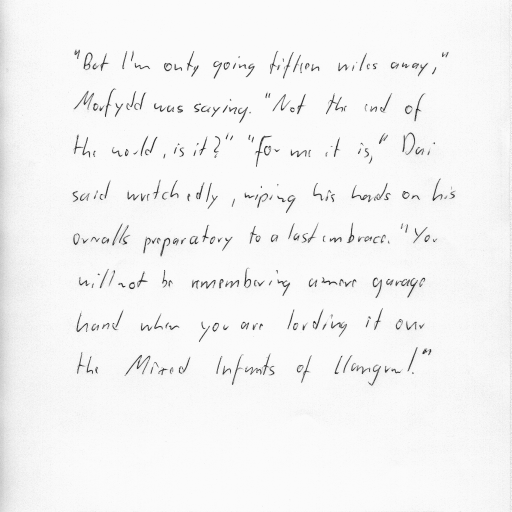 "But I'm only going fifteen miles away,"
Morfydd was saying. "Not the end of
the world, is it?" "For me it is," Dai
said wretchedly, wiping his hands on his
overalls preparatory to a last embrace. "You
will not be remembering a mere garage
hand when you are lording it over
the Mixed Infants of